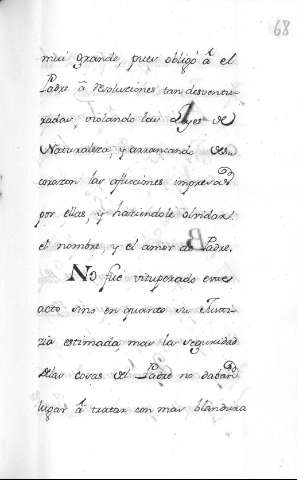 68
mui grande, pues obligó â el
Padre â resoluciones tan desventu-
radas, violando las Leyes de
Naturaleza, y arrancando de su
corazon las aficciones impresas
por ellas, y haciendole olvidar
el nombre, y el amor de Padre.
No fue vituperado este
acto sino en quanto su Justi-
zia estimada, mas la seguridad
de las cosas de el Padre no daban
lugar â tratar con mas blandura